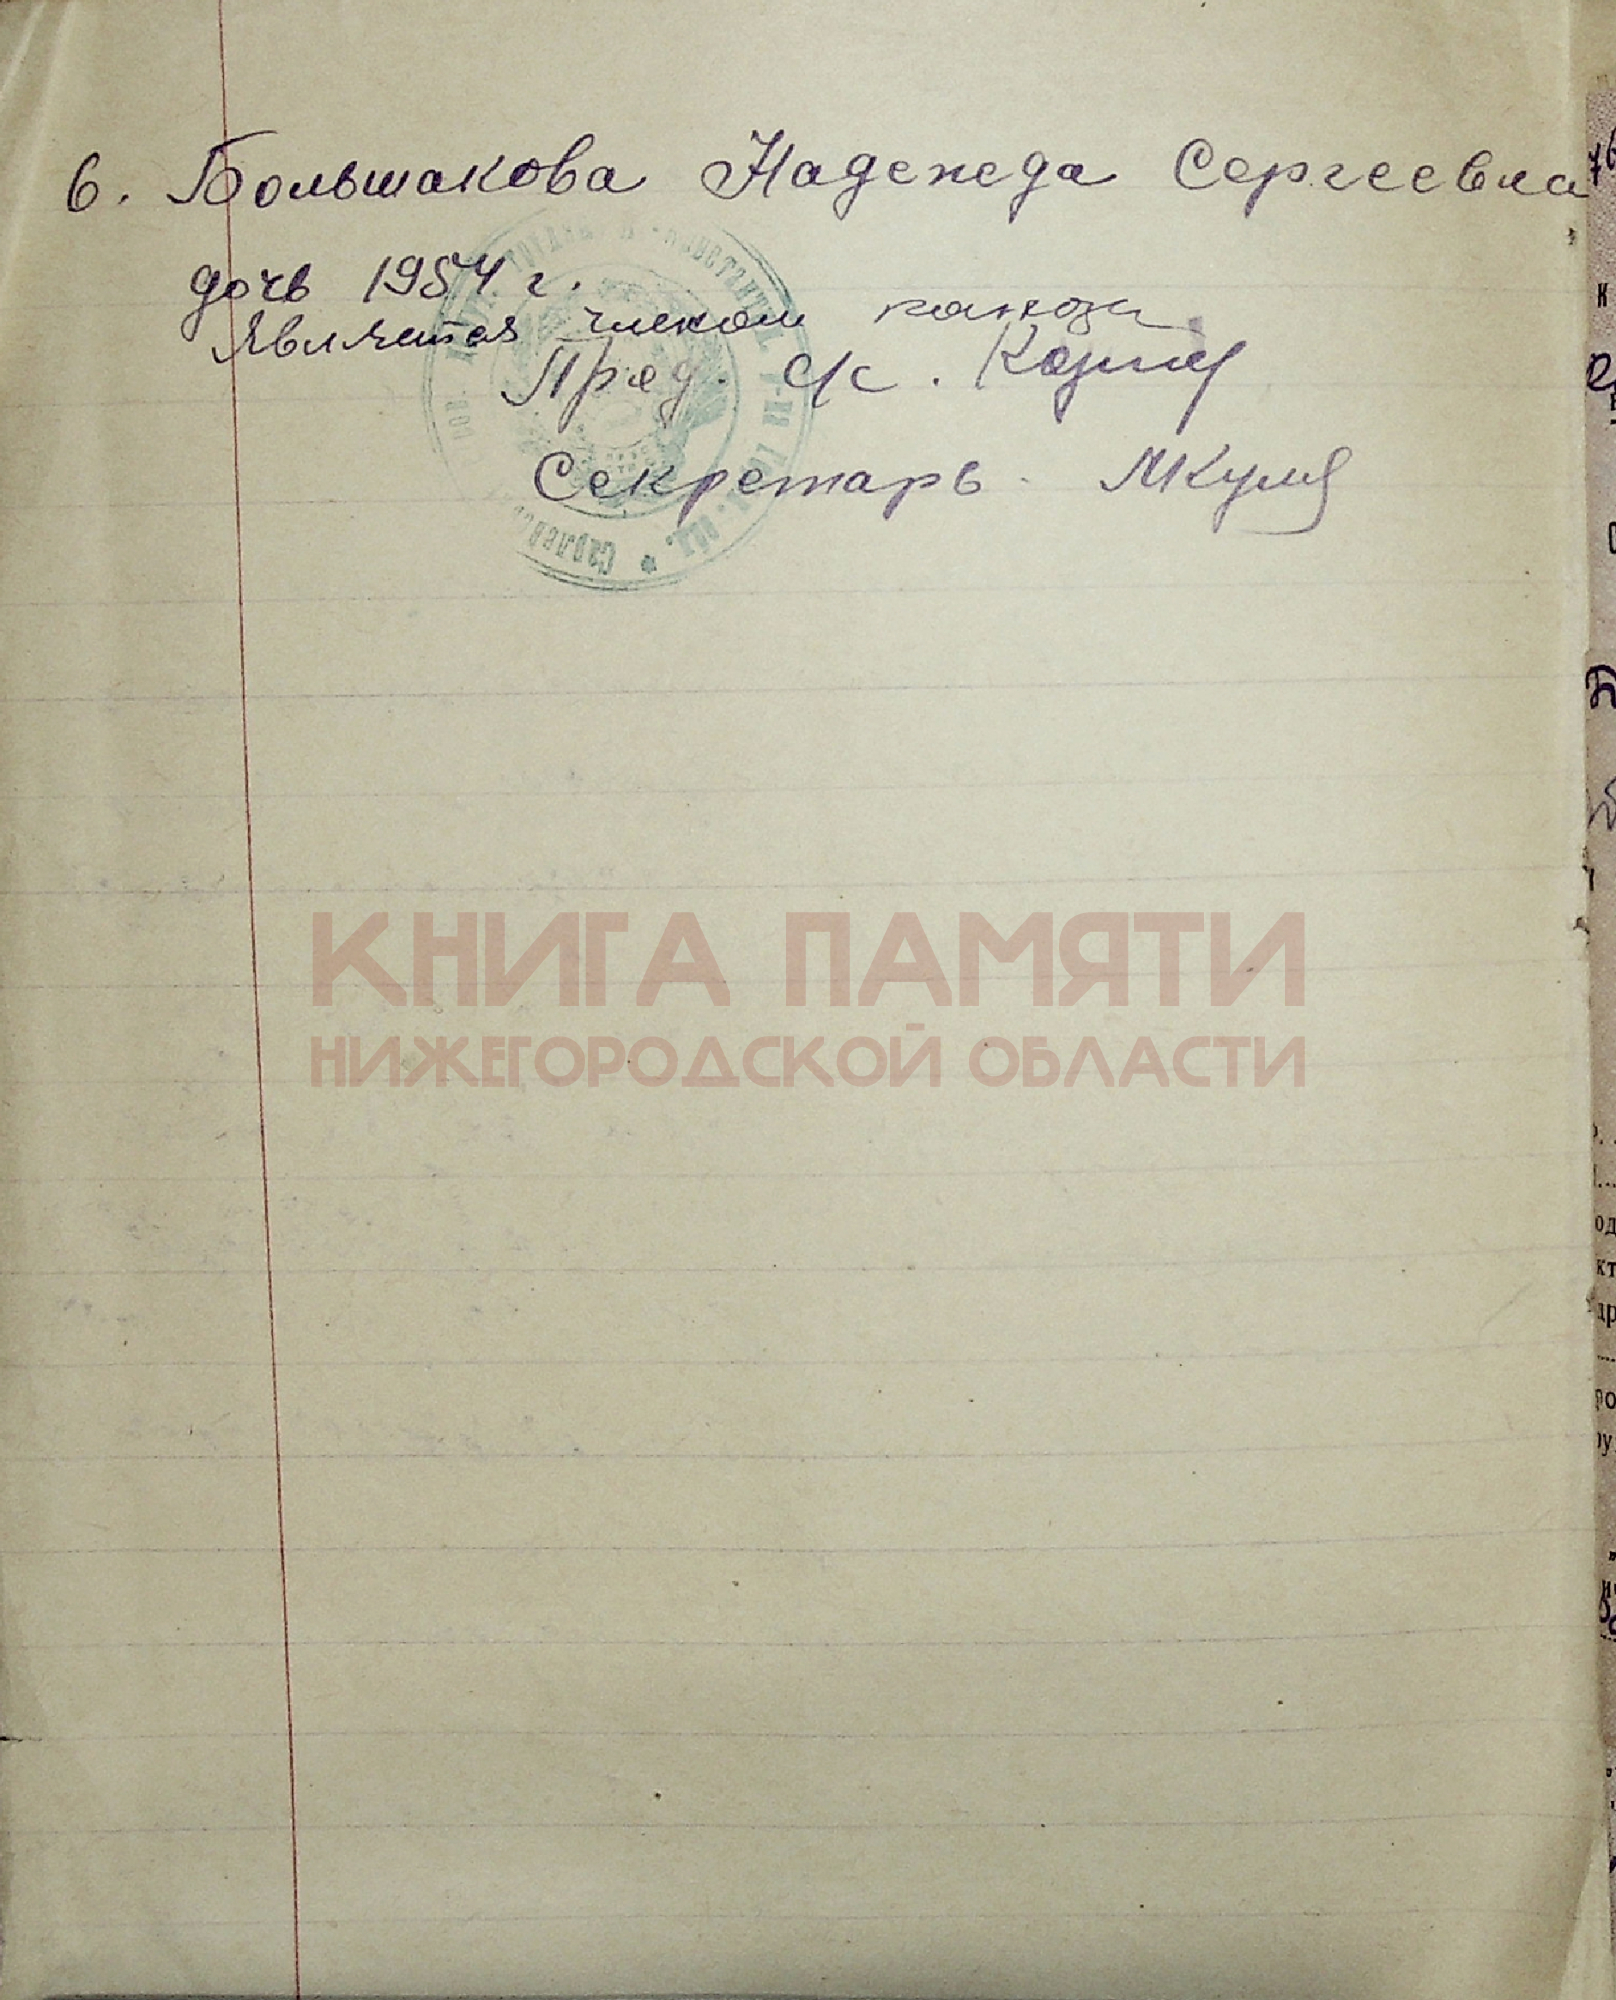 6. Большакова Надежда Сергеевна
дочь 1954 г.
Является членом колхоза
Пред. с/с.
Секретарь
КНИГА ПАМЯТИ
НИЖЕГОРОДСКОЙ ОБЛАСТИ